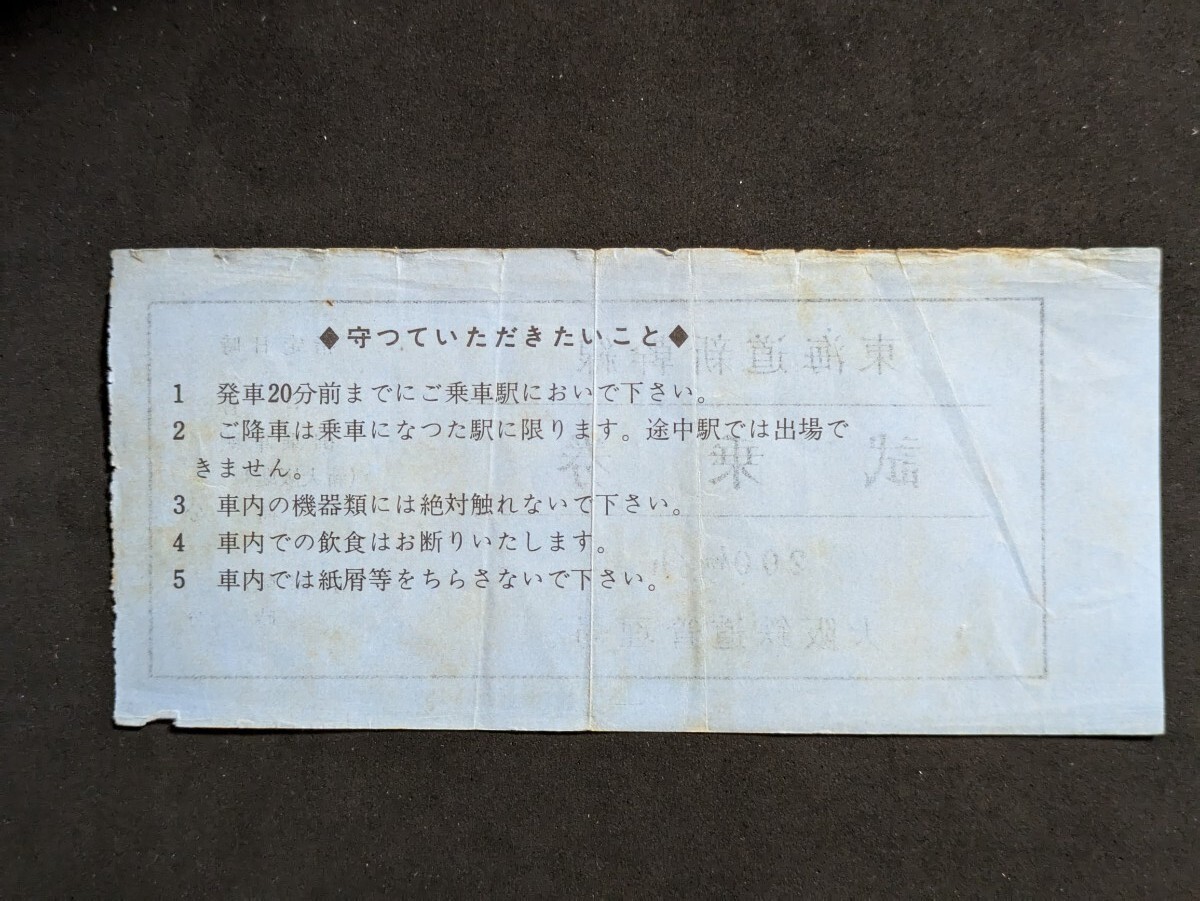 ◆守つていただきたいこと◆
1 発車20分前までにご乗車駅においで下さい。
2 ご降車は乗車になつた駅に限ります。途中駅では出場で
きません。
3 車内の機器類には絶対触れないで下さい。
4 車内での飲食はお断りいたします。
5 車内では紙屑等をちらさないで下さい。
東海道新幹線
試乗券
大阪鉄道管理局